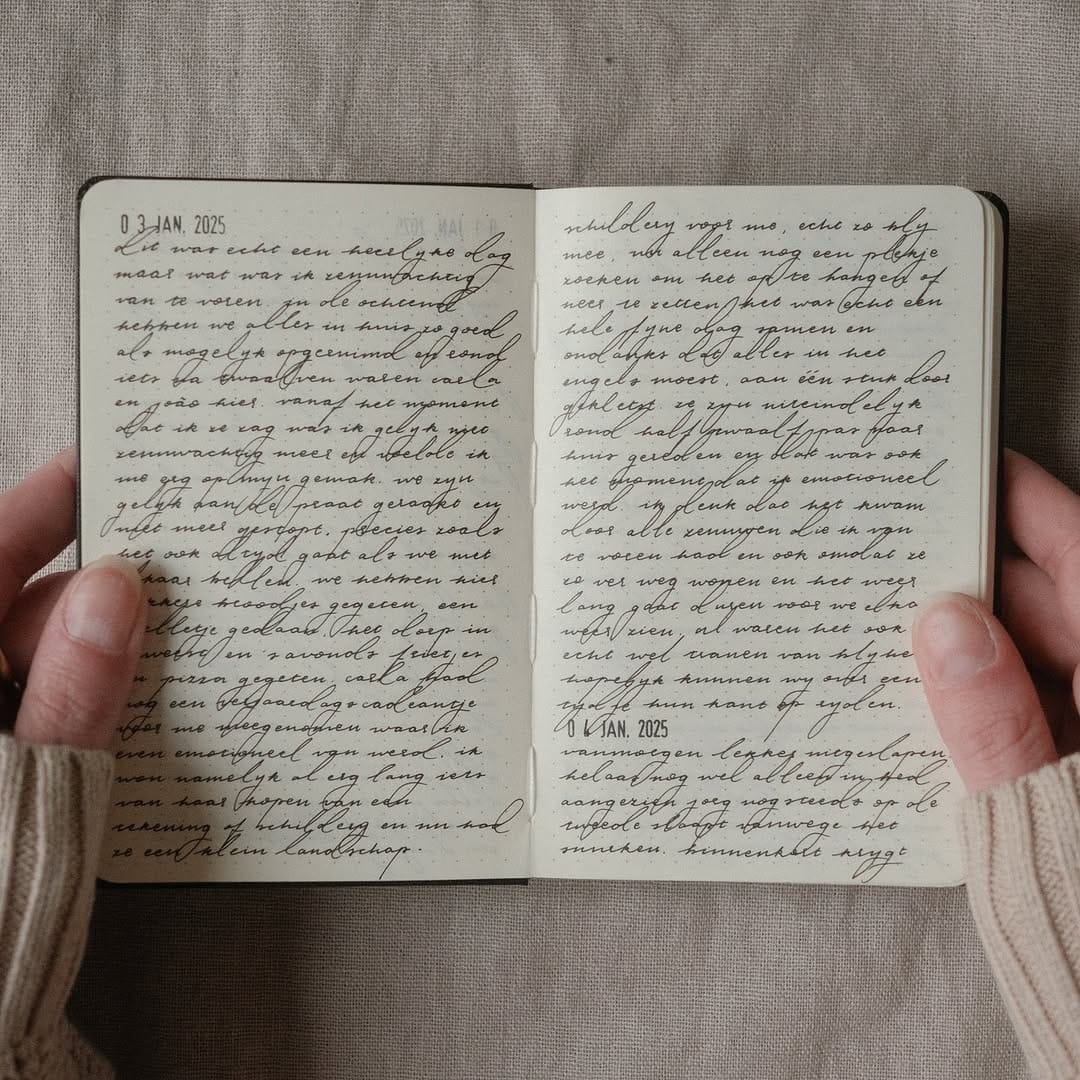 0 3 JAN. 2025
dit was echt een heerlijke dag
maar wat was ik zenuwachtig
van te voren. in de ochtend
hebben we alles in huis zo goed
als mogelijk opgeruimd en rond
iets na twaalven waren carla
en joão hier. vanaf het moment
dat ik ze zag was ik gelijk niet
zenuwachtig meer en voelde ik
me erg op mijn gemak. we zijn
gelijk aan de praat geraakt en
niet meer gestopt, precies zoals
het ook altijd gaat als we met
elkaar bellen. we hebben hier
broodjes gegeten, een
gedaan, het dorp in
geweest en 's avonds frietjes
en pizza gegeten. carla had
nog een verjaardagscadeautje
voor me meegenomen waar ik
even emotioneel van werd. ik
wou namelijk al erg lang iets
van haar kopen van een
tekening of schilderij en nu had
ze een klein landschap.
schilderij voor me, echt zo blij
mee, nu alleen nog een plekje
zoeken om het op te hangen of
neer te zetten, het was echt een
hele fijne dag samen en
ondanks dat alles in het
engels moest, aan één stuk door
gekletst. ze zijn uiteindelijk
rond half twaalf pas naar
huis gereden en dat was ook
het moment dat ik emotioneel
werd. ik denk dat het kwam
door alle zenuwen die ik van
te voren had en ook omdat ze
zo ver weg wonen en het weer
lang gaat duren voor we elkaar
weer zien, al waren het ook
echt wel tranen van blijheid
hopelijk kunnen wij ooit een
tijdje hun kant op rijden.
0 4 JAN. 2025
vanmorgen lekker uitgeslapen
helaas nog wel alleen in bed
aangezien joeg nog steeds op de
tweede slaapt vanwege het
snurken. binnenkort krijgt